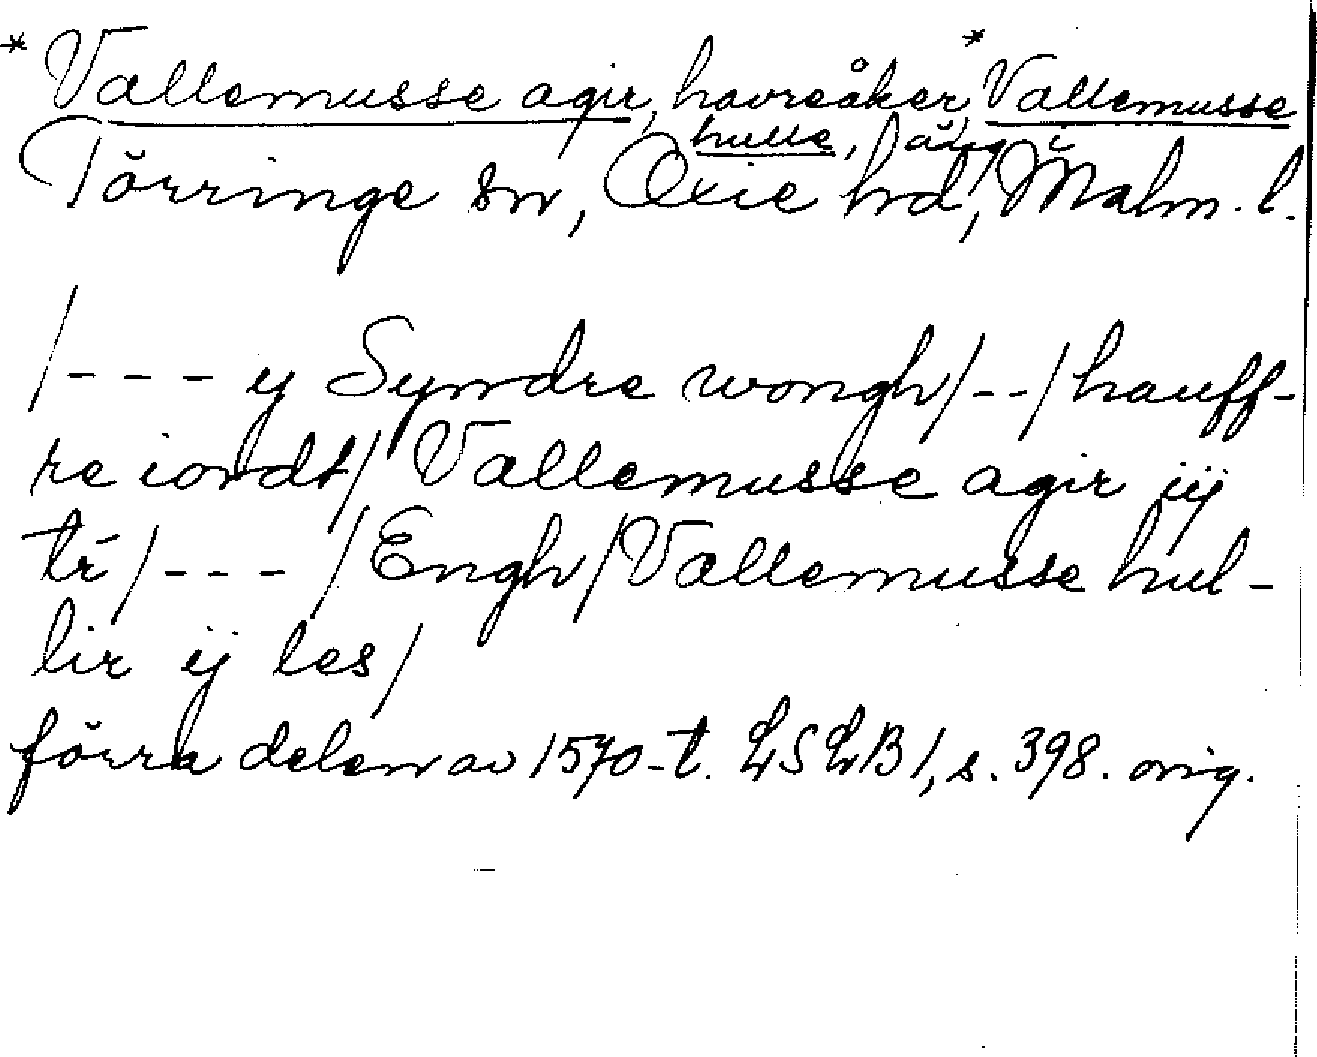 * Vallemusse agir, havreåker, * Vallemusse
hulle, äng i
Törringe sn, Oxie hd, Malm. l.
/--- y Syndre wongh/--/hauff-
re iordt/ Vallemusse agir iij
tr̄/---/Engh/Vallemusse hul-
lir ij les/
förra delen av 1570-t. LSLB1, s. 398. orig.